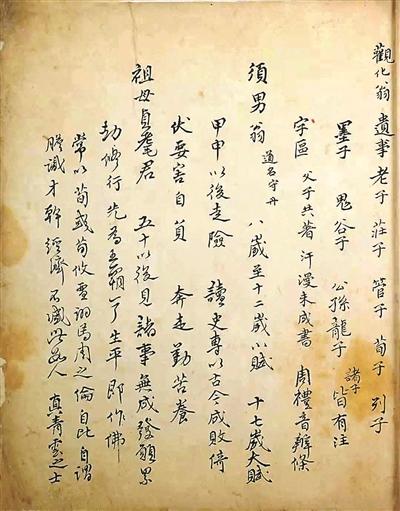 觀化翁遺事老子 莊子 管子 荀子 列子
墨子 鬼谷子 公孫龍子 諸子皆有注
字區 父子共著汗漫未成書 周禮音辨條
須男翁 道名守丹 八歲至十二歲小賦 十七歲大賦
甲申以後走險 讀史專以古今成敗倚
伏要害自負 奔走勤苦養
祖母貞髦君 五十以後見諸事無成發願累
劫修行先為五霸了生平即作佛
常以荀彧荀攸賈詡馬周之倫自比自謂
膽識才幹經濟不減此人 真青雲之士